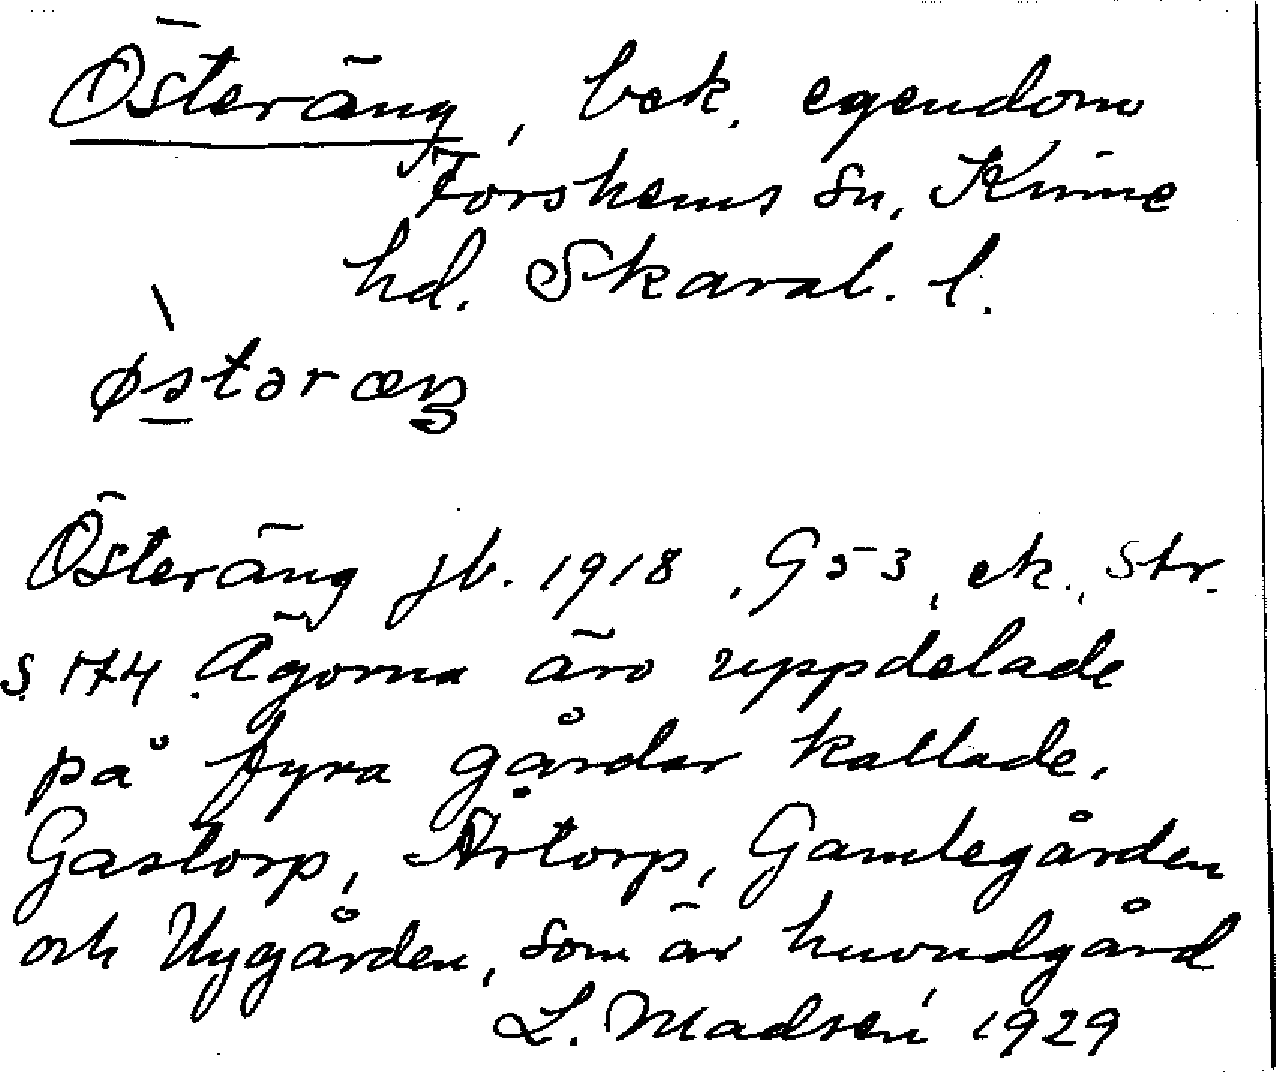 Österäng, bek. egendom
Forshems sn, Kinne
hd. Skarab. l.
ø̀stəræŋ
Österäng jb. 1918, G53, ek., Str.
S. 174. Ägorna äro uppdelade
på fyra gårdar kallade,
Gastorp, Årtorp, Gamlegården
och Nygården, som är huvudgård
L. Madsén 1929